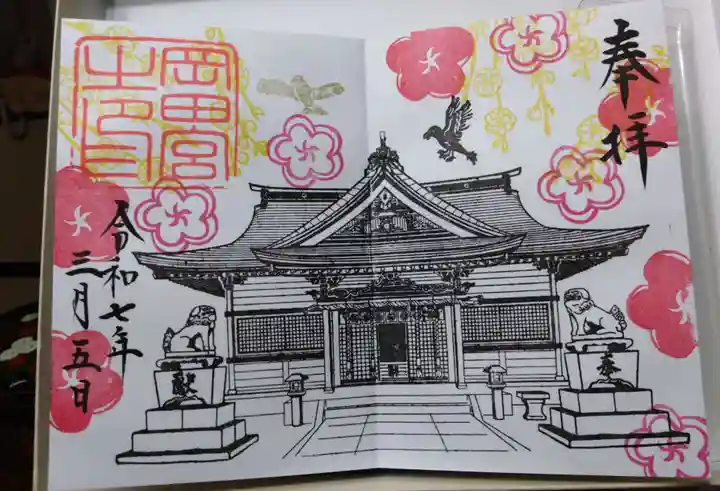 奉拝
岡田宮
之印
令和七年
三月五日
奉
献